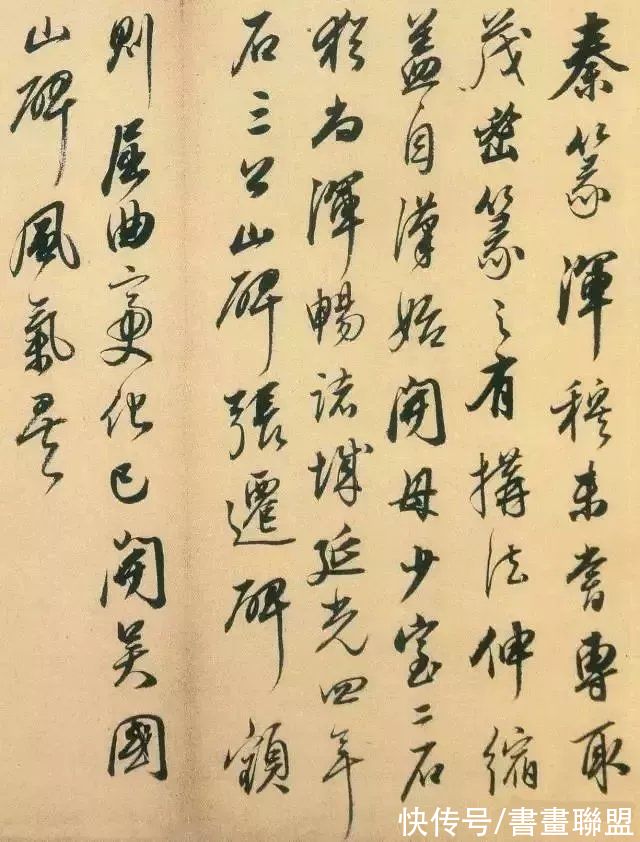 秦篆渾穆未嘗專取
茂密篆之有搆法伸縮
蓋自漢始開母少室二石
猶尚渾暢諸城延光四年
石三公山碑張遷碑額
則屈曲變化已開吳國
山碑風氣矣
快传号/書畫聯盟